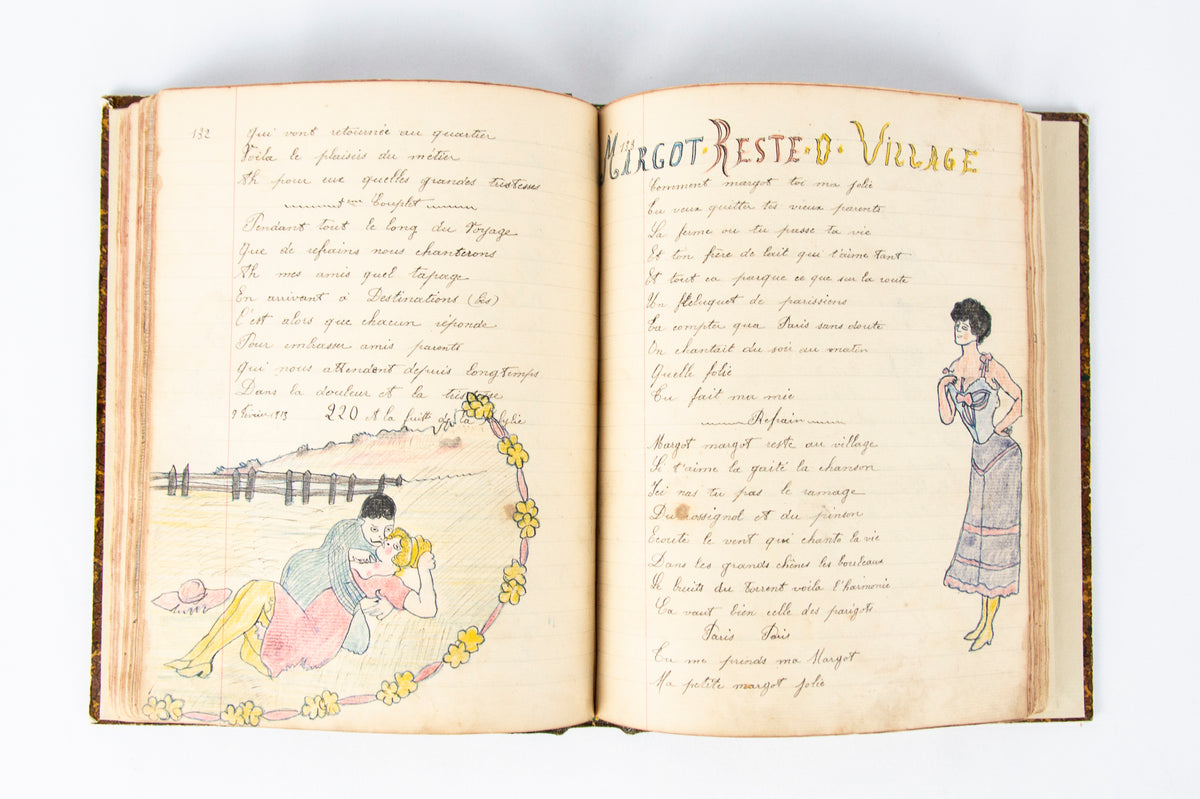 132
Qui vont retournée au quartier
Voila le plaisirs du métier
Ah pour eue quelles grandes tristesses
Couplet
Pendant tout le long du Voyage
Que de refrains nous chanterons
Ah mes amis quel tapage
En arrivant à Destinations (bis)
C'est alors que chacun réponde
Pour embrasser amis parents
Qui nous attendent depuis longtemps
Dans la douleur et la tristesse
9 Fevrier 1913 220 et la fuitte de la
133
MARGOT·RESTE·O·VILLAGE
Comment margot toi ma jolie
Tu veux quitter tes vieux parents
La ferme ou tu passe ta vie
Et ton frère de lait qui t'aime tant
Et tout ca parque ce que sur la route
Un freluquet de parissiens
Ta compter qua Paris sans doute
On chantait du soir au matin
Quelle folie
Tu fait ma mie
Refrain
Margot margot reste au village
Si t'aime la gaité la chanson
Ici nas tu pas le ramage
Du rossignol et du pinson
Ecoute le vent qui chante la vie
Dans les grands chênes les bouleaux
Le bruits du torrent voila l'harmonie
Ca vaut bien celle des parigots
Paris Paris
Tu me prends ma Margot
Ma petite margot jolie